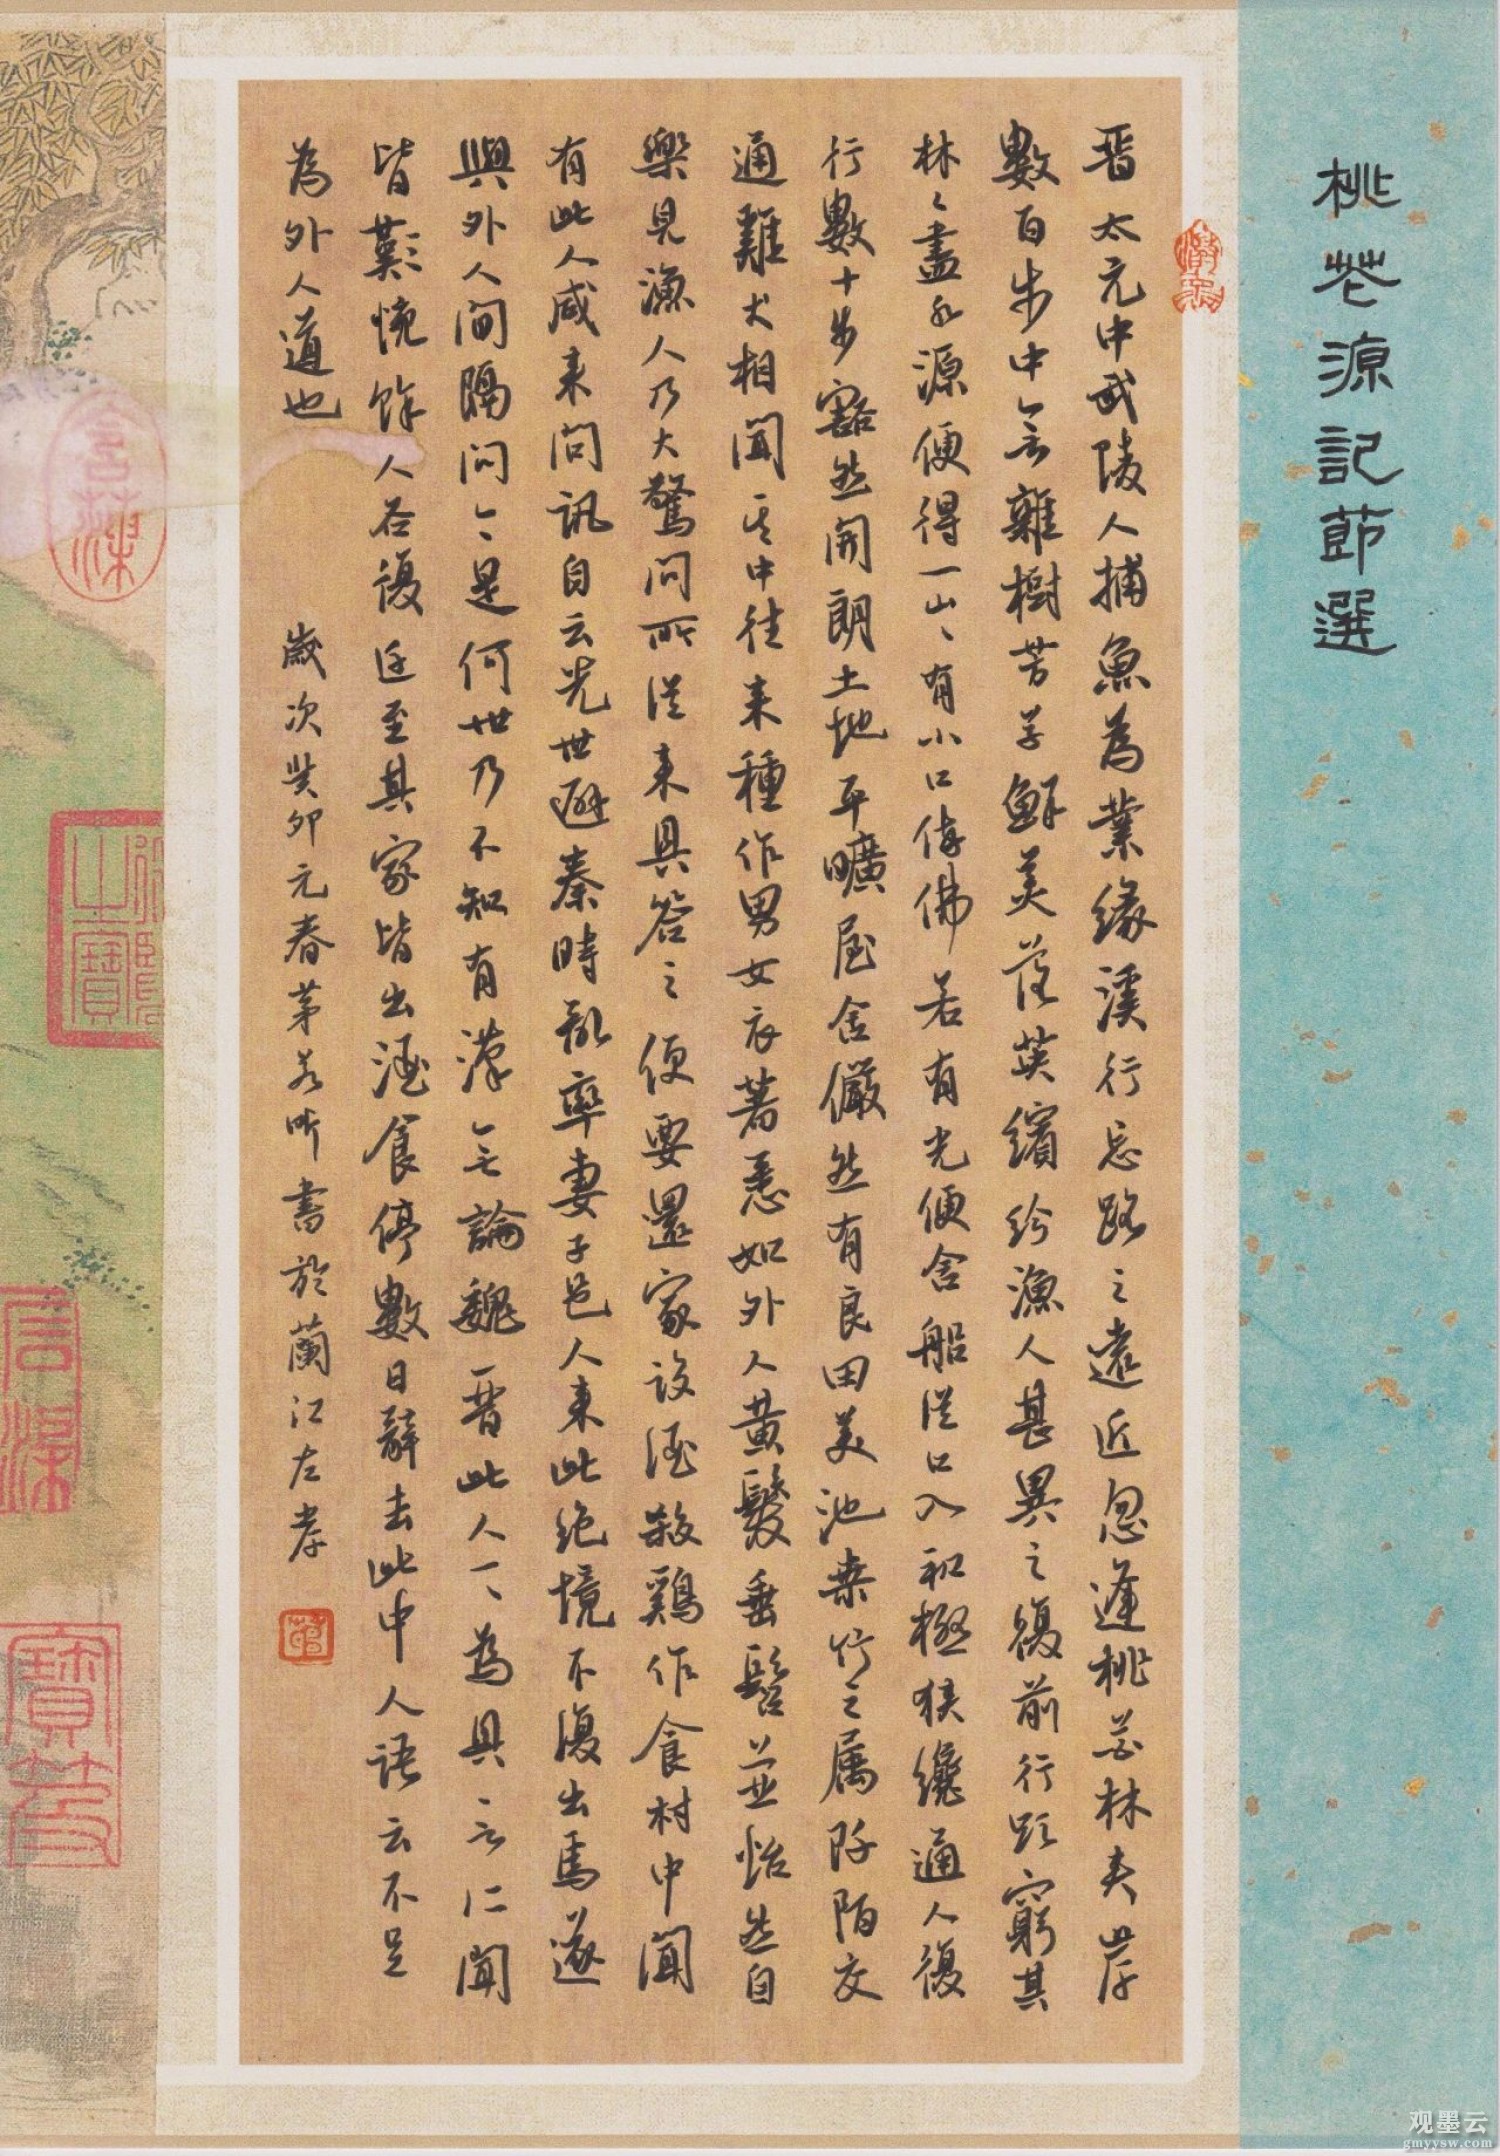 桃花源記節選
晉太元中武陵人捕魚為業緣溪行忘路之遠近忽逢桃花林夾岸
數百步中無雜樹芳草鮮美落英繽紛漁人甚異之復前行欲窮其
林〻盡水源便得一山〻有小口彷彿若有光便舍船從口入初極狹纔通人復
行數十步豁然開朗土地平曠屋舍儼然有良田美池桑竹之屬阡陌交
通雞犬相聞其中往來種作男女衣著悉如外人黃髮垂髫並怡然自
樂見漁人乃大驚問所從來具答之便要還家設酒殺雞作食村中聞
有此人咸來問訊自云先世避秦時亂率妻子邑人來此絕境不復出焉遂
與外人間隔問今是何世乃不知有漢無論魏晉此人一〻為具言所聞
皆歎惋餘人各復延至其家皆出酒食停數日辭去此中人語云不足
為外人道也
歲次癸卯元春茅若昕書於蘭江左
观墨云
gmyysw.com